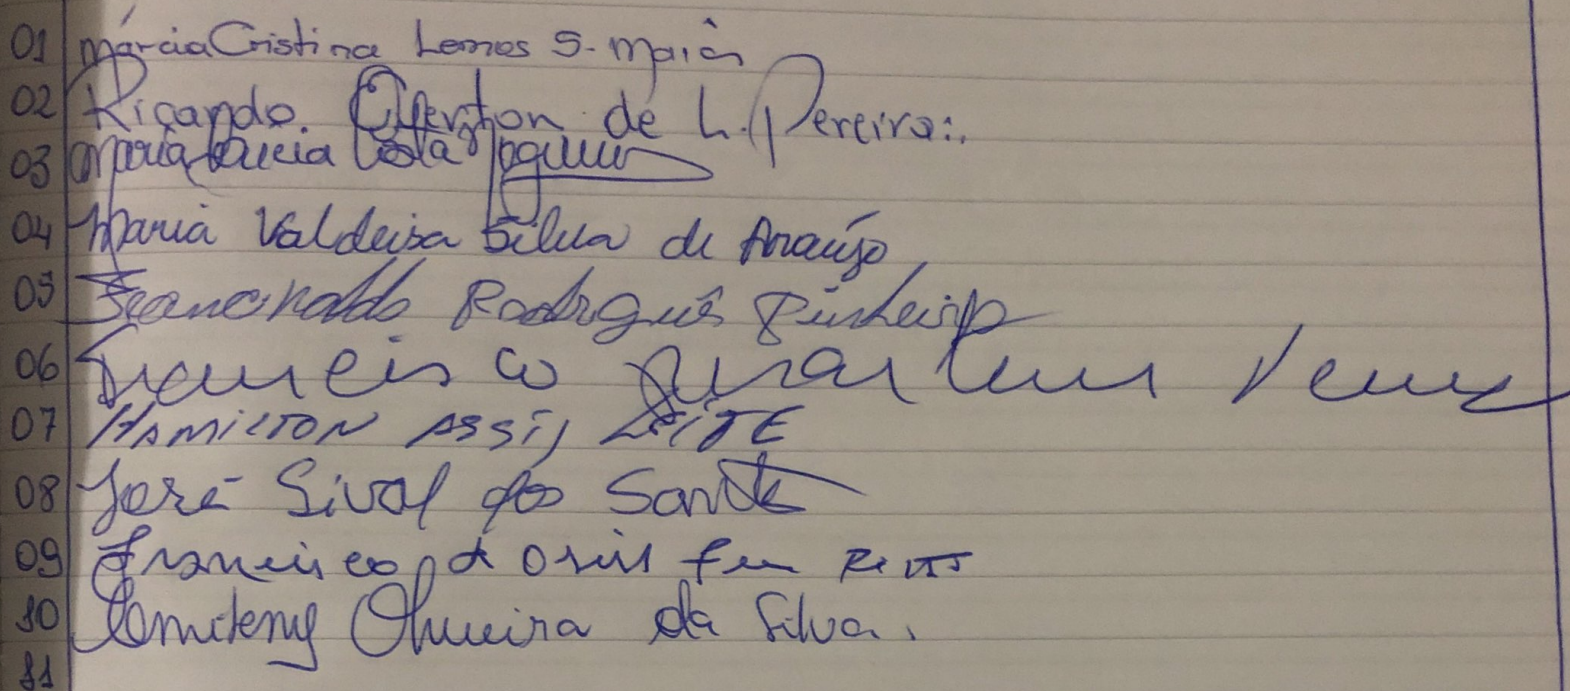 01 Márcia Cristina Lemos S. Maia
02 Ricardo. de L. Pereira:.
03 Maria Lúcia Costa
04 Maria Valdeisa Silva de Araújo
05 Francinaldo Rodrigues Pinheiro
06 Francisco
07 HAMILTON ASSIS LEITE
08 José Sival dos Santos
09 Francisco
10 Oliveira da Silva.
11